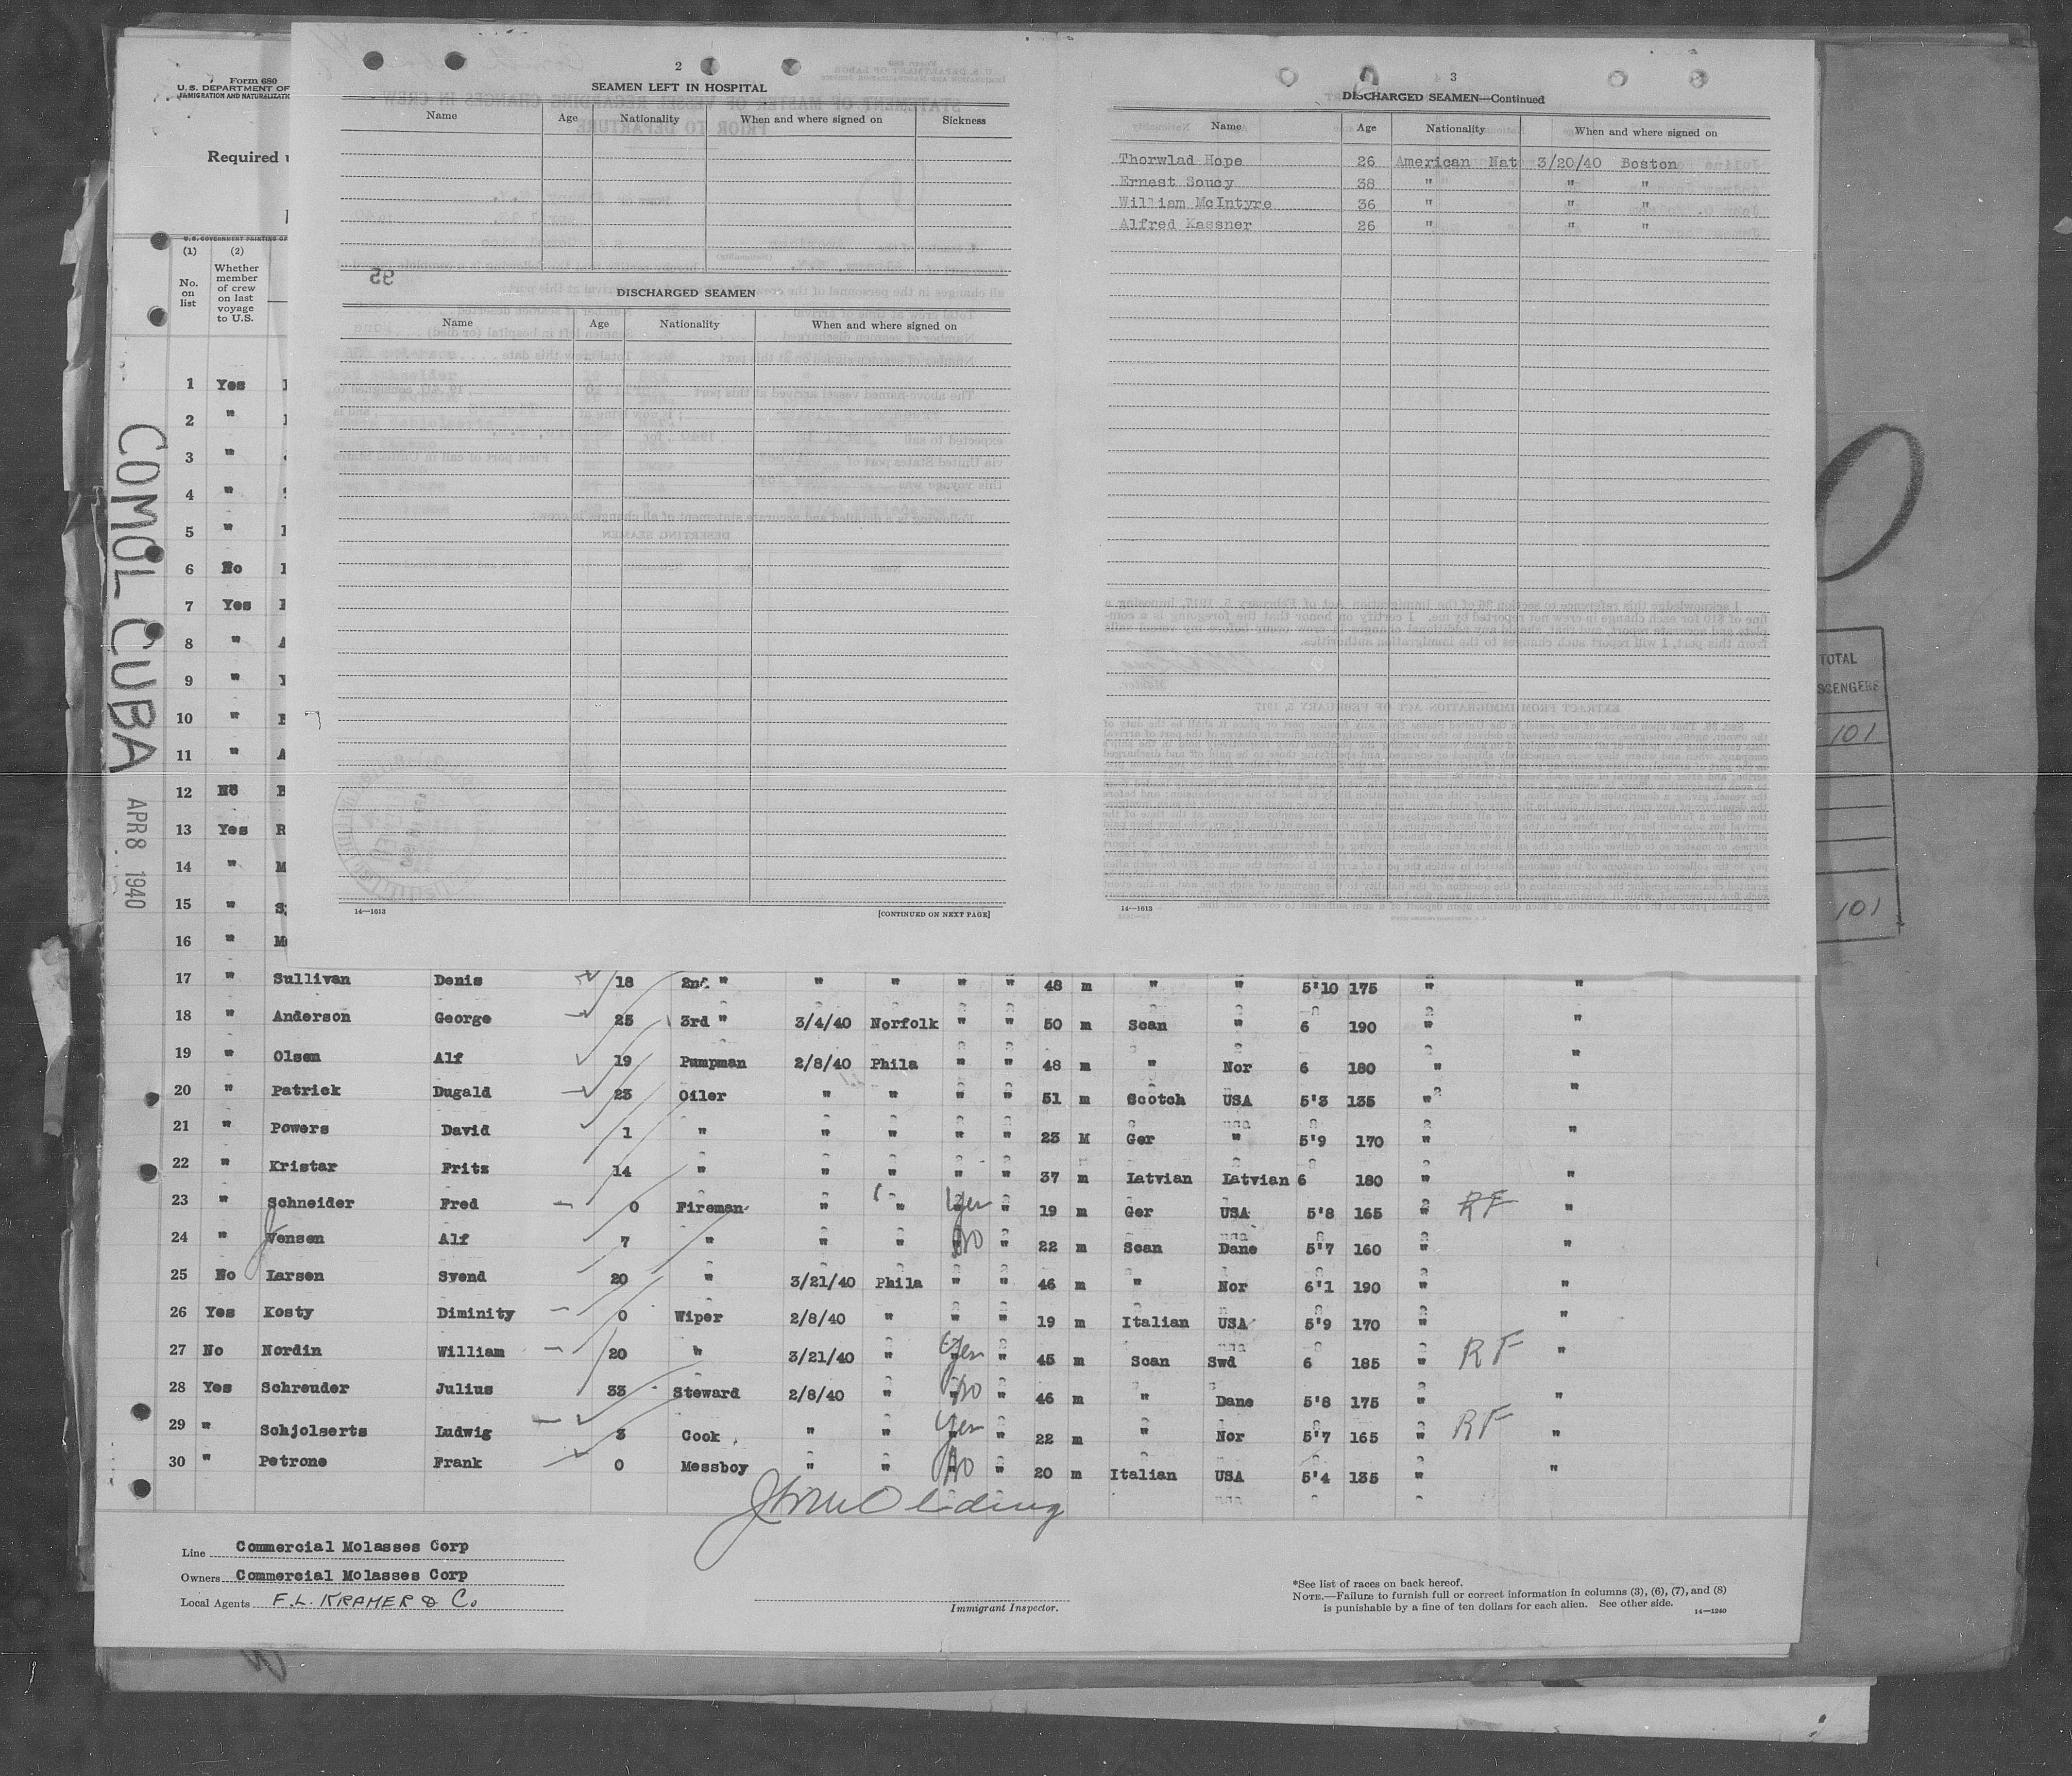 Form 680
U. S. DEPARTMENT OF
IMMIGRATION AND NATURALIZATION
Required
(1) (2)
No. on list
Whether member of crew on last voyage to U.S.
COMOL CUBA APR 8 1940
1 Yes
2 "
3 "
4 "
5 "
6 No
7 Yes
8 "
9 "
10 "
11 "
12 No
13 Yes R
14 " M
15 "
16 "
2
SEAMEN LEFT IN HOSPITAL
Name Age Nationality When and where signed on Sickness
95
DISCHARGED SEAMEN
Name Age Nationality When and where signed on
14—1613 [CONTINUED ON NEXT PAGE]
3
DISCHARGED SEAMEN—Continued
Name Age Nationality When and where signed on
Thorwlad Hope 26 American Nat 3/20/40 Boston
Ernest Soucy 38 " " " "
William McIntyre 36 " " " "
Alfred Kassner 26 " " " "
14—1613
TOTAL
101
101
17 " Sullivan Denis 18 2nd " " " " " 48 m " " 5'10 175 " "
18 " Anderson George 25 3rd " 3/4/40 Norfolk " " 50 m Scan " 6 190 " "
19 " Olsen Alf 19 Pumpman 2/8/40 Phila " " 48 m " Nor 6 180 " "
20 " Patrick Dugald 23 Oiler " " " " 51 m Scotch USA 5'3 135 " "
21 " Powers David 1 " " " " " 23 M Ger " 5'9 170 " "
22 " Kristar Fritz 14 " " " " " 37 m Latvian Latvian 6 180 " "
23 " Schneider Fred 0 Fireman " " Yes " 19 m Ger USA 5'8 165 " RF "
24 " Jensen Alf 7 " " " No " 22 m Scan Dane 5'7 160 " "
25 No Larsen Svend 20 " 3/21/40 Phila " " 46 m " Nor 6'1 190 " "
26 Yes Kosty Diminity 0 Wiper 2/8/40 " " " 19 m Italian USA 5'9 170 " "
27 No Nordin William 20 " 3/21/40 " Yes " 45 m Scan Swd 6 185 " RF "
28 Yes Schreuder Julius 33 Steward 2/8/40 " No " 46 m " Dane 5'8 175 " "
29 " Schjolserts Ludwig 3 Cook " " Yes " 22 m " Nor 5'7 165 " RF "
30 " Petrone Frank 0 Messboy " " No " 20 m Italian USA 5'4 135 " "
Line Commercial Molasses Corp
Owners Commercial Molasses Corp
Local Agents F.L. KRAMER & Co.
Immigrant Inspector.
*See list of races on back hereof.
NOTE.—Failure to furnish full or correct information in columns (3), (6), (7), and (8)
is punishable by a fine of ten dollars for each alien. See other side. 14—1240